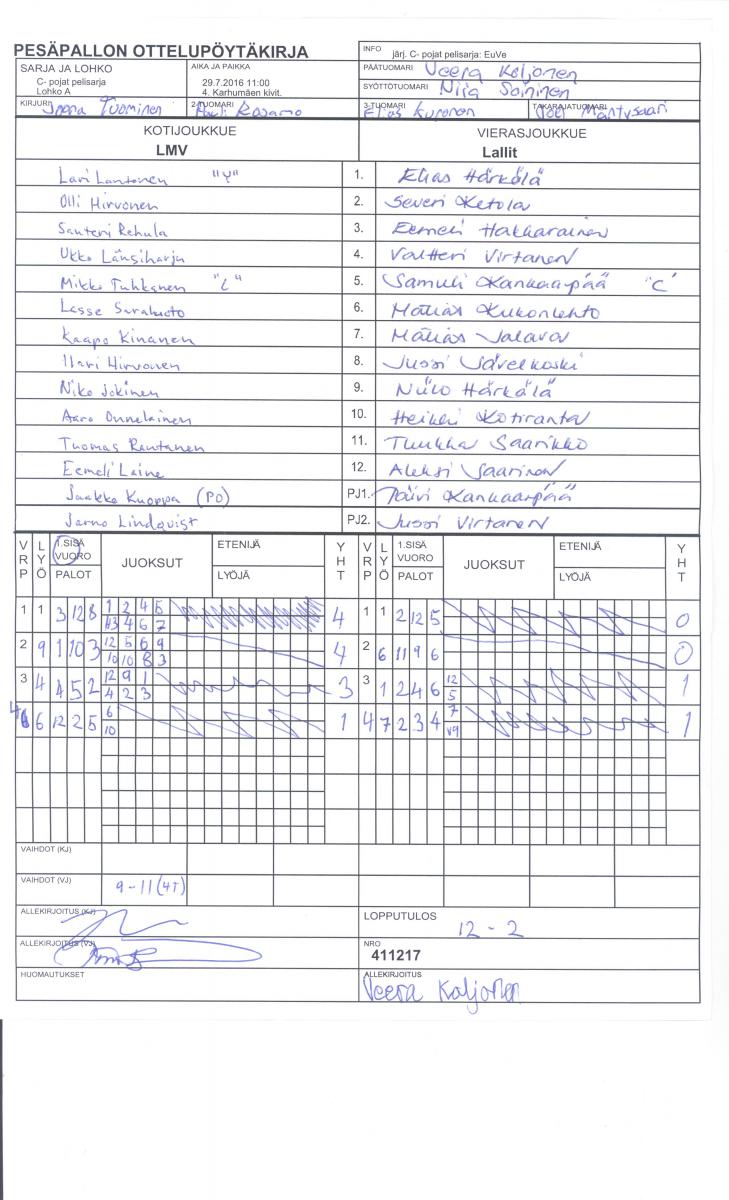 PESÄPALLON OTTELUPÖYTÄKIRJA
INFO järj. C- pojat pelisarja: EuVe
SARJA JA LOHKO
C- pojat pelisarja
Lohko A
AIKA JA PAIKKA
29.7.2016 11:00
4. Karhumäen kivit.
PÄÄTUOMARI Veera Koljonen
SYÖTTÖTUOMARI Niia Soininen
KIRJURI Tuominen
2-TUOMARI
3-TUOMARI Elias Kuronen
TAKARAJATUOMARI Mäntysaari
KOTIJOUKKUE
LMV
VIERASJOUKKUE
Lallit
Lari Lantonen "Y" 1. Elias Härkälä
Olli Hirvonen 2. Severi Ketola
Santeri Rehula 3. Eemeli Hakkarainen
Ukko Länsiharju 4. Valtteri Virtanen
Mikko Tuhkanen "L" 5. Samuli Kankaanpää "C"
Lasse Saraluoto 6. Matias Kukonlehto
Kaapo Kinanen 7. Matias Jalava
Ilari Hirvonen 8. Jussi Sävelkoski
Niko Jokinen 9. Niilo Härkälä
Aaro Onnelainen 10. Heikki Kotiranta
Tuomas Rautanen 11. Tuukka Saarikko
Eemeli Laine 12. Aleksi Saarinen
Jaakko Kuoppa (PO) PJ1. Päivi Kankaanpää
Jarno Lindqvist PJ2. Jussi Virtanen
VRP LYÖ 1.SISÄ VUORO PALOT JUOKSUT ETENIJÄ LYÖJÄ YHT VRP LYÖ 1.SISÄ VUORO PALOT JUOKSUT ETENIJÄ LYÖJÄ YHT
1 1 3 12 8 1 2 4 5 4 1 1 2 12 5 0
4 6 7
2 9 1 10 3 12 5 6 9 4 2 6 11 9 6 0
10 10 8 3
3 4 4 5 2 12 9 1 3 3 1 2 4 6 12 1
4 2 3 5
4 6 12 2 5 6 1 4 7 2 3 4 7 1
10 v9
VAIHDOT (KJ)
VAIHDOT (VJ) 9-11 (4T)
ALLEKIRJOITUS (KJ)
LOPPUTULOS 12 - 2
ALLEKIRJOITUS (VJ)
NRO
411217
HUOMAUTUKSET
ALLEKIRJOITUS
Veera Koljonen